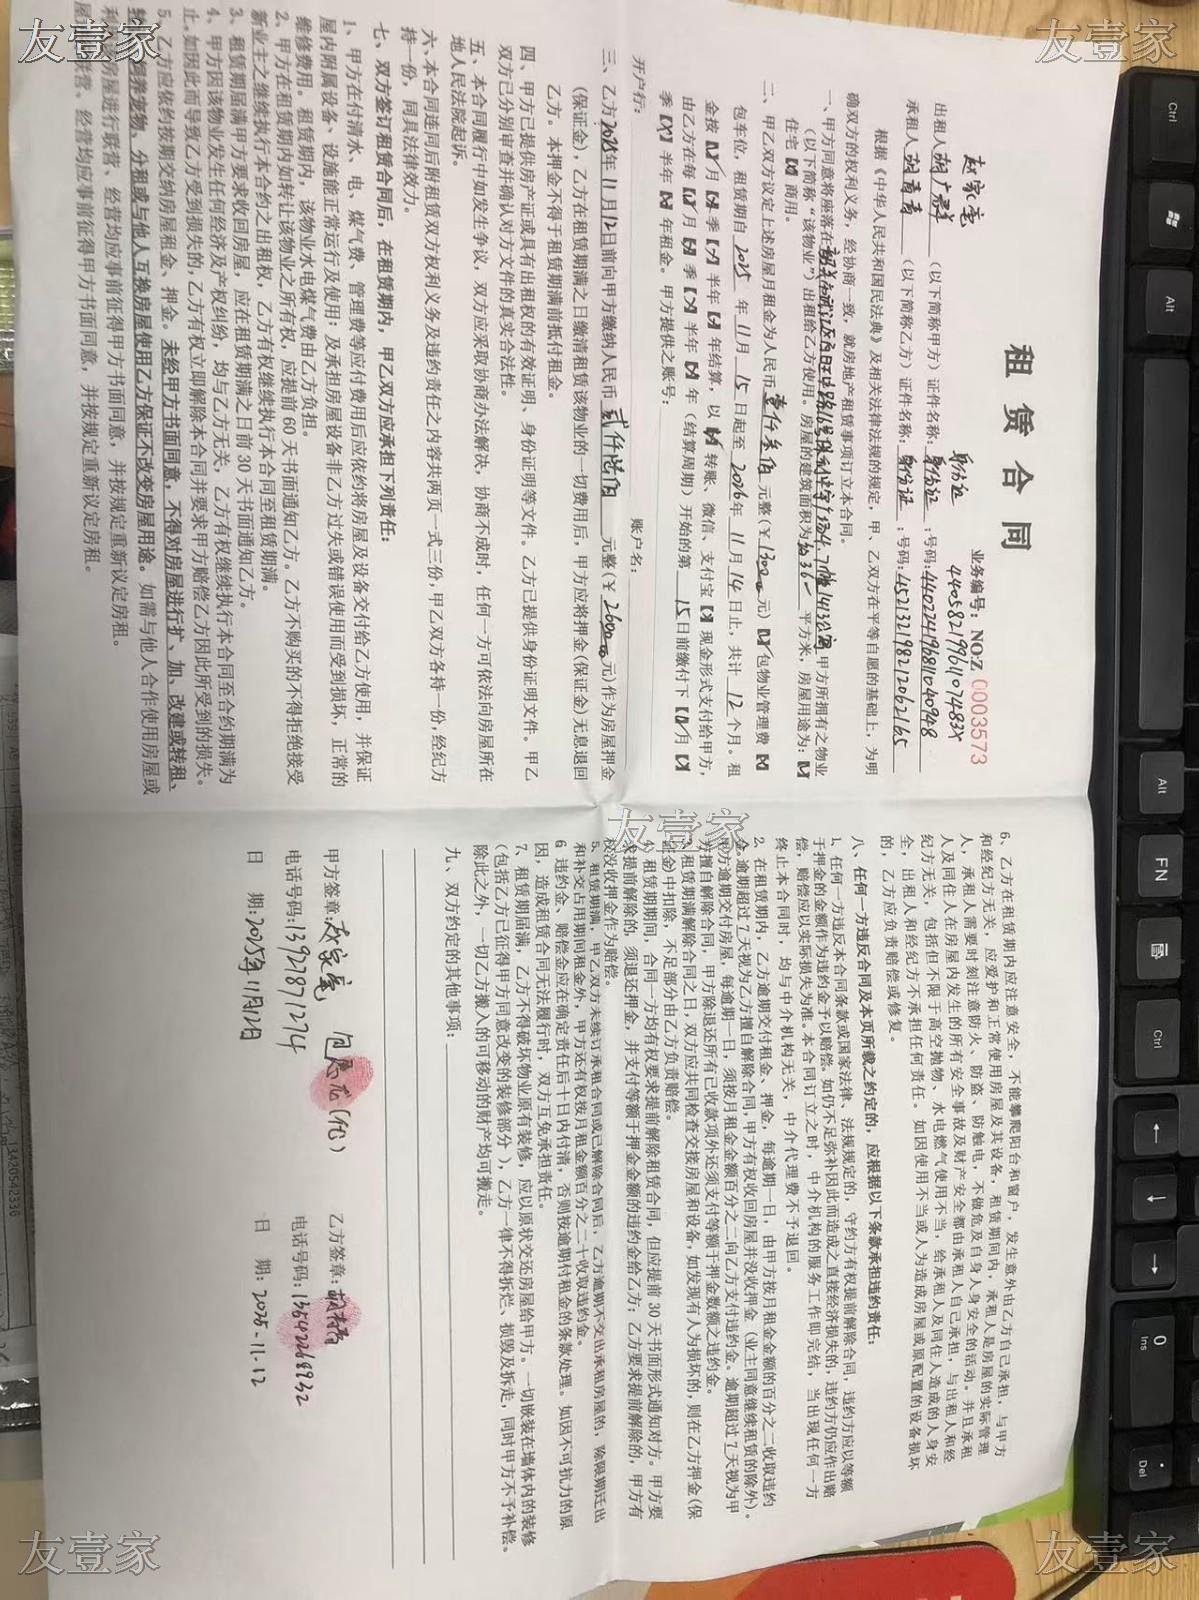 租赁合同
业务编号：NO:Z 0003573
赵家亳 身份证 44058219961107483X
出租人 胡广群 （以下简称甲方）证件名称：身份证；号码：440224196811040948
承租人 胡青青 （以下简称乙方）证件名称：身份证；号码：452132198212062165
根据《中华人民共和国民法典》及相关法律法规的规定，甲、乙双方在平等自愿的基础上，为明
确双方的权利义务，经协商一致，就房地产租赁事项订立本合同。
一、甲方同意将座落在 甲方所拥有之物业
（以下简称“该物业”）出租给乙方使用。房屋的建筑面积为 36 平方米，房屋用途为：【✓】
住宅【×】商用。
二、甲乙双方议定上述房屋月租金为人民币 壹仟叁佰 元整（¥1300.00元）【✓】包物业管理费【×】
包车位，租赁期自 2025 年 11 月 15 日起至 2026 年 11 月 14 日止，共计 12 个月。租
金按【✓】月【×】季【×】半年【×】年结算，以【✓】转账、微信、支付宝【×】现金形式支付给甲方，
由乙方在每【✓】月【×】季【×】半年【×】年（结算周期）开始的第 15 日前缴付下【✓】月【×】
季【×】半年【×】年租金。甲方提供之账号：
开户行： 账户名：
三、乙方2025年11月12日前向甲方缴纳人民币 贰仟陆佰 元整（¥2600.00元）作为房屋押金
（保证金），乙方在租赁期满之日缴清租赁该物业的一切费用后，甲方应将押金（保证金）无息退回
乙方。本押金不得于租赁期满前抵付租金。
四、甲方已提供房产证或具有出租权的有效证明、身份证明等文件。乙方已提供身份证明文件。甲乙
双方已分别审查并确认对方文件的真实合法性。
五、本合同履行中如发生争议，双方应采取协商办法解决，协商不成时，任何一方可依法向房屋所在
地人民法院起诉。
六、本合同连同后附租赁双方权利义务及违约责任之内容共两页一式三份，甲乙双方各持一份，经纪方
持一份，同具法律效力。
七、双方签订租赁合同后，在租赁期内，甲乙双方应承担下列责任：
1、甲方在付清水、电、煤气费、管理费等应付费用后应依约将房屋及设备交付给乙方使用，并保证
屋内附属设备、设施能正常运行及使用；及承担房屋设备非乙方过失或错误使用而受到损坏，正常的
维修费用。租赁期内，该物业水电煤气费由乙方负担。
2、甲方在租赁期内如转让该物业之所有权，应提前 60 天书面通知乙方。乙方不购买的不得拒绝接受
新业主之继续执行本合约之出租权，乙方有权继续执行本合同至租赁期满。
3、租赁期届满甲方要求收回房屋，应在租赁期满之日前 30 天书面通知乙方。
4、甲方因该物业发生任何经济及产权纠纷，均与乙方无关，乙方有权继续执行本合同至合约期满为
止。如因此而导致乙方受到损失的，乙方有权立即解除本合同并要求甲方赔偿乙方因此所受到的损失。
5、乙方应依约按期交纳房屋租金、押金。未经甲方书面同意，不得对房屋进行扩、加、改建或转租、
饲养宠物、分租或与他人互换房屋使用乙方保证不改变房屋用途。如需与他人合作使用房屋或
房屋进行联营、经营均应事前征得甲方书面同意，并按规定重新议定房租。
6、乙方在租赁期内应注意安全，不能攀爬阳台和窗户，发生意外由乙方自己承担，与甲方
和经纪方无关，应爱护和正常使用房屋及其设备，租赁期间内，承租人是房屋的实际管理
人，承租人需要时刻注意防火、防盗、防触电，不做危及自身人身安全的活动。并且承租
人及同住人在房屋内发生的所有安全事故及财产安全都由承租人自己承担，与出租人和经
纪方无关，包括但不限于高空抛物、水电燃气使用不当，给承租人及同住人造成的人身安
全，出租人和经纪方不承担任何责任。如因使用不当或人为造成房屋或原配置的设备损坏
的，乙方应负责赔偿或修复。
八、任何一方违反合同及本页所载之约定的，应根据以下条款承担违约责任：
1、任何一方违反本合同条款或国家法律、法规规定的，守约方有权提前解除合同，违约方应以等额
于押金的金额作为违约金予以赔偿。如仍不足弥补因此而造成之直接经济损失的，违约方仍应作出赔
偿，赔偿应以实际损失为准。本合同订立之时，中介机构的服务工作即完结，当出现任何一方
终止本合同时，均与中介机构无关，中介代理费不予退回。
2、在租赁期内，乙方逾期交付租金、押金，每逾期一日，由甲方按月租金金额的百分之二收取违约
金，逾期超过 7 天视为乙方擅自解除合同，甲方有权收回房屋并没收押金（业主同意继续租赁的除外）。
甲方逾期交付房屋，每逾期一日，须按月租金金额百分之二向乙方支付违约金。逾期超过 7 天视为甲
方擅自解除合同，甲方除退还所有已收款项外还须支付等额于押金数额之违约金。
3、租赁期满解除合同之日，双方应共同检查交接房屋和设备，如发现有人为损坏的，则在乙方押金（保
证金）中扣除，不足部分由乙方负责赔偿。
4、租赁期期间，合同一方均有权要求提前解除租赁合同，但应提前 30 天书面形式通知对方。甲方要
求提前解除的，须退还押金，并支付等额于押金金额的违约金给乙方；乙方要求提前解除的，甲方有
权没收押金作为赔偿。
5、租赁期满，甲乙双方未续订承租合同或已解除合同后，乙方逾期不交出承租房屋的，除限期迁出
和补交占用期间租金外，甲方还有权按月租金额百分之二十收取违约金。
6 违约金、赔偿金应在确定责任后十日内付清，否则按逾期付租金的条款处理。如因不可抗力的原
因，造成租赁合同无法履行时，双方互免承担责任。
7、租赁期届满，乙方不得破坏物业原有装修，应以原状交还房屋给甲方。一切嵌装在墙体内的装修
（包括乙方已征得甲方同意改变的装修部分），乙方一律不得拆烂、损毁及拆走，同时甲方不予补偿。
除此之外，一切乙方搬入的可移动的财产均可搬走。
九、双方约定的其他事项：
甲方签章：赵家亳 （代） 乙方签章：胡青青
电话号码：13927871274 电话号码：13542268932
日 期：2025年11月12日 日 期：2025-11-12
友壹家
友壹家
友壹家
友壹家
友壹家
Ctrl
Alt
Alt
FN
Ctrl
←
↓
→
0
Ins
.
Del
13420542336